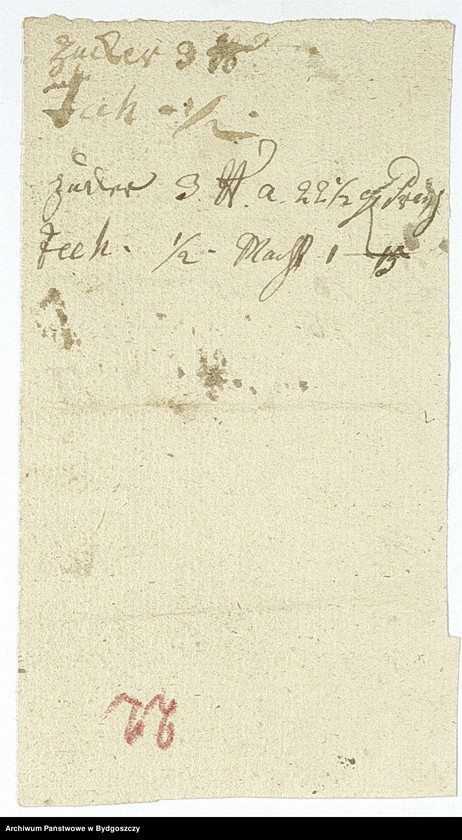 Zucker 3 ℔
Teeh - ½ -
Zucker 3 ℔. a. 22½ g
Teeh. ½ - Macht 1
22
Archiwum Państwowe w Bydgoszczy